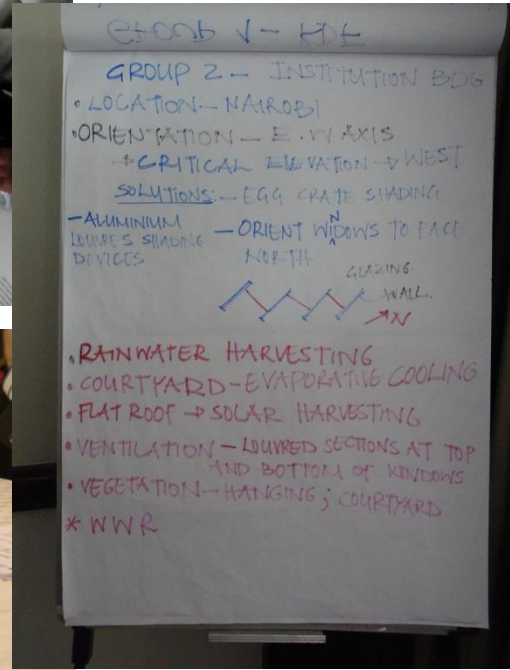 GROUP 2 - INSTITUTION BDG
• LOCATION - NAIROBI
• ORIENTATION - E.W AXIS
→ CRITICAL ELEVATION → WEST
SOLUTIONS: - EGG CRATE SHADING
- ALUMINIUM
LOUVRES SHADING
DEVICES
- ORIENT WIDOWS TO FACE
N
NORTH
GLAZING
WALL.
N
• RAINWATER HARVESTING
• COURTYARD - EVAPORATIVE COOLING
• FLAT ROOF → SOLAR HARVESTING
• VENTILATION - LOUVRED SECTIONS AT TOP
AND BOTTOM OF WINDOWS
• VEGETATION - HANGING ; COURTYARD
* WWR